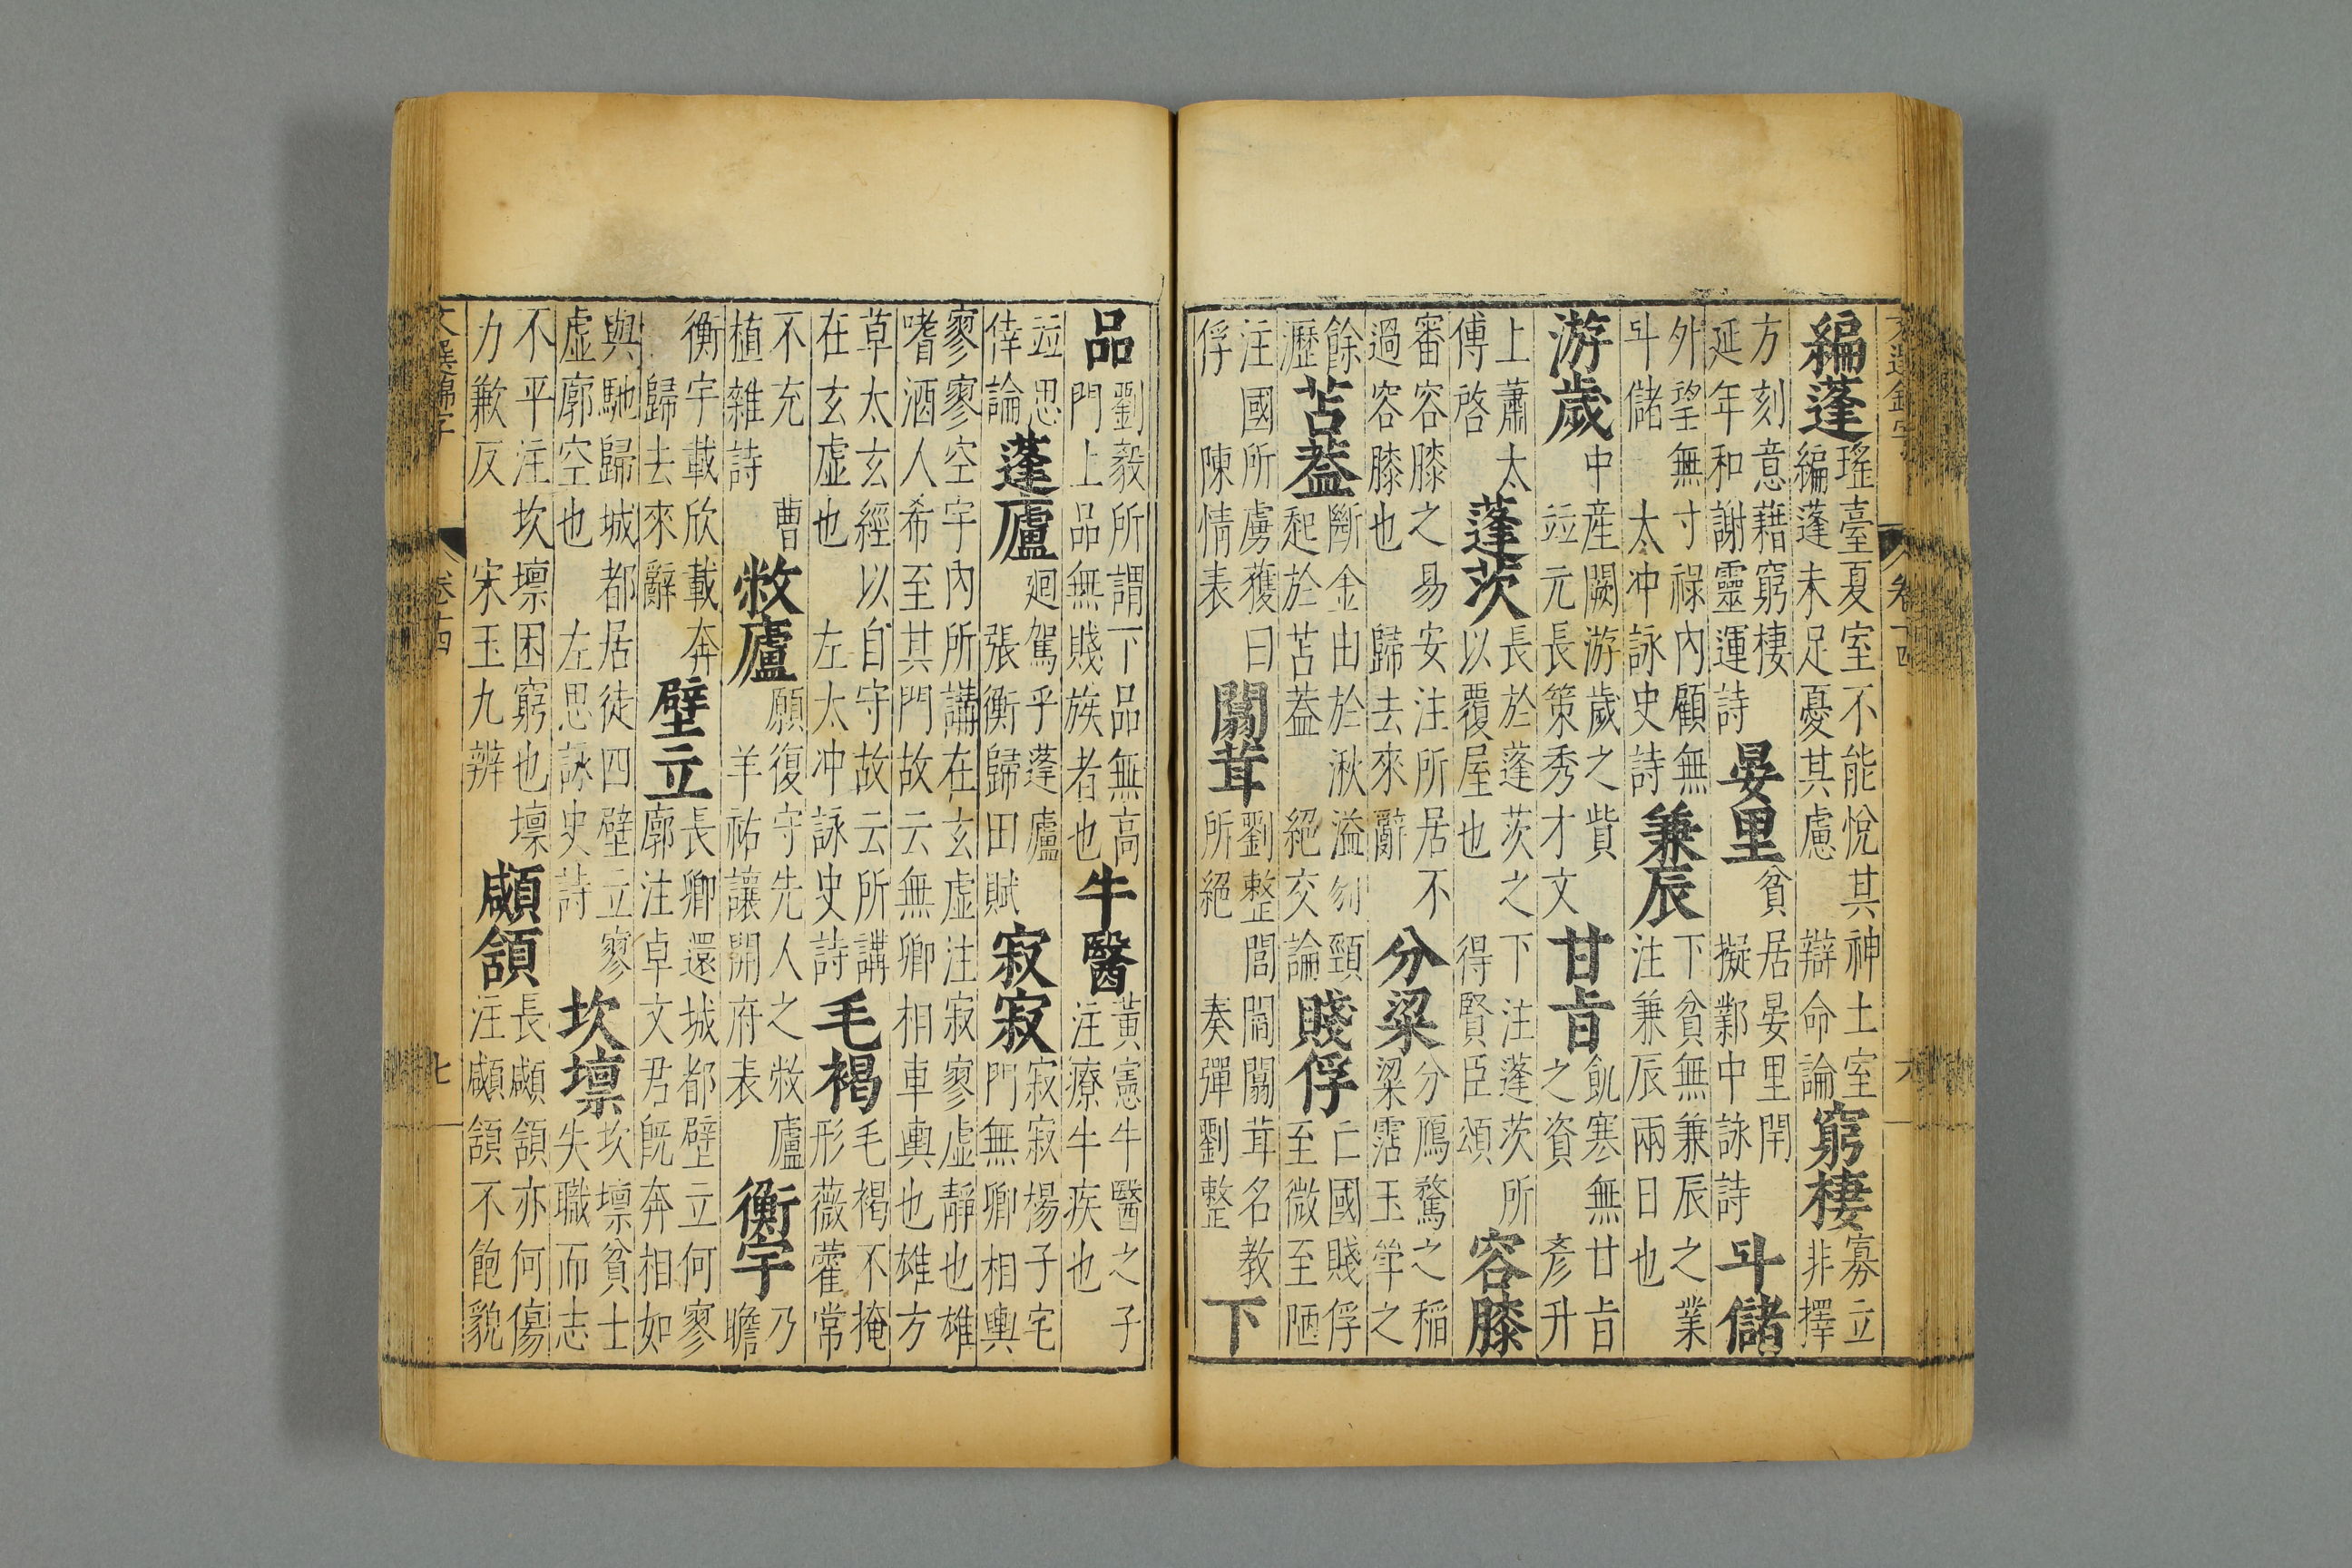 編蓬
瑤臺夏室不能悅其神土室
編蓬未足憂其慮 辯命論
窮棲
寡立
非擇
方刻意藉窮棲
延年和謝靈運詩
晏里
貧居晏里閈
擬鄴中詠詩
斗儲
外望無寸祿內顧無
斗儲 太冲詠史詩
兼辰
下貧無兼辰之業
注兼辰兩日也
游歲
中産闕游歲之貲
竝元長策秀才文
甘旨
飢寒無甘旨
之資 彥升
上蕭太
傅啓
蓬茨
長於蓬茨之下注蓬茨所
以覆屋也 得賢臣頌
容膝
審容膝之易安注所居不
過容膝也 歸去來辭
分粱
分鴈鶩之稻
粱霑玉斝之
餘
瀝
苫葢
斷金由於湫溢刎頸
起於苫葢 絕交論
賤俘
亡國賤俘
至微至陋
注國所虜獲曰
俘 陳情表
闒茸
劉整閭閻闒茸名教
所絕 奏彈劉整
下
品
劉毅所謂下品無高
門上品無賤族者也
牛醫
黃憲牛醫之子
注療牛疾也
竝思
倖論
蓬廬
廻駕乎蓬廬
張衡歸田賦
寂寂
寂寂楊子宅
門無卿相輿
寥寥空宇內所講在玄虛注寂寥虛靜也雄
嗜酒人希至其門故云無卿相車輿也雄方
草太玄經以自守故云所講
在玄虛也 左太冲詠史詩
毛褐
毛褐不掩
形薇藿常
不充 曹
植雜詩
敝廬
願復守先人之敝廬
羊祜讓開府表
衡宇
乃
瞻
衡宇載欣載奔
歸去來辭
壁立
長卿還城都壁立何寥
廓注卓文君旣奔相如
與馳歸城都居徒四壁立寥
虛廓空也 左思詠史詩
坎壈
坎壈貧士
失職而志
不平注坎壈困窮也壈
力歉反 宋玉九辨
顑頷
長顑頷亦何傷
注顑頷不飽貌
文選錦字
卷十四
七